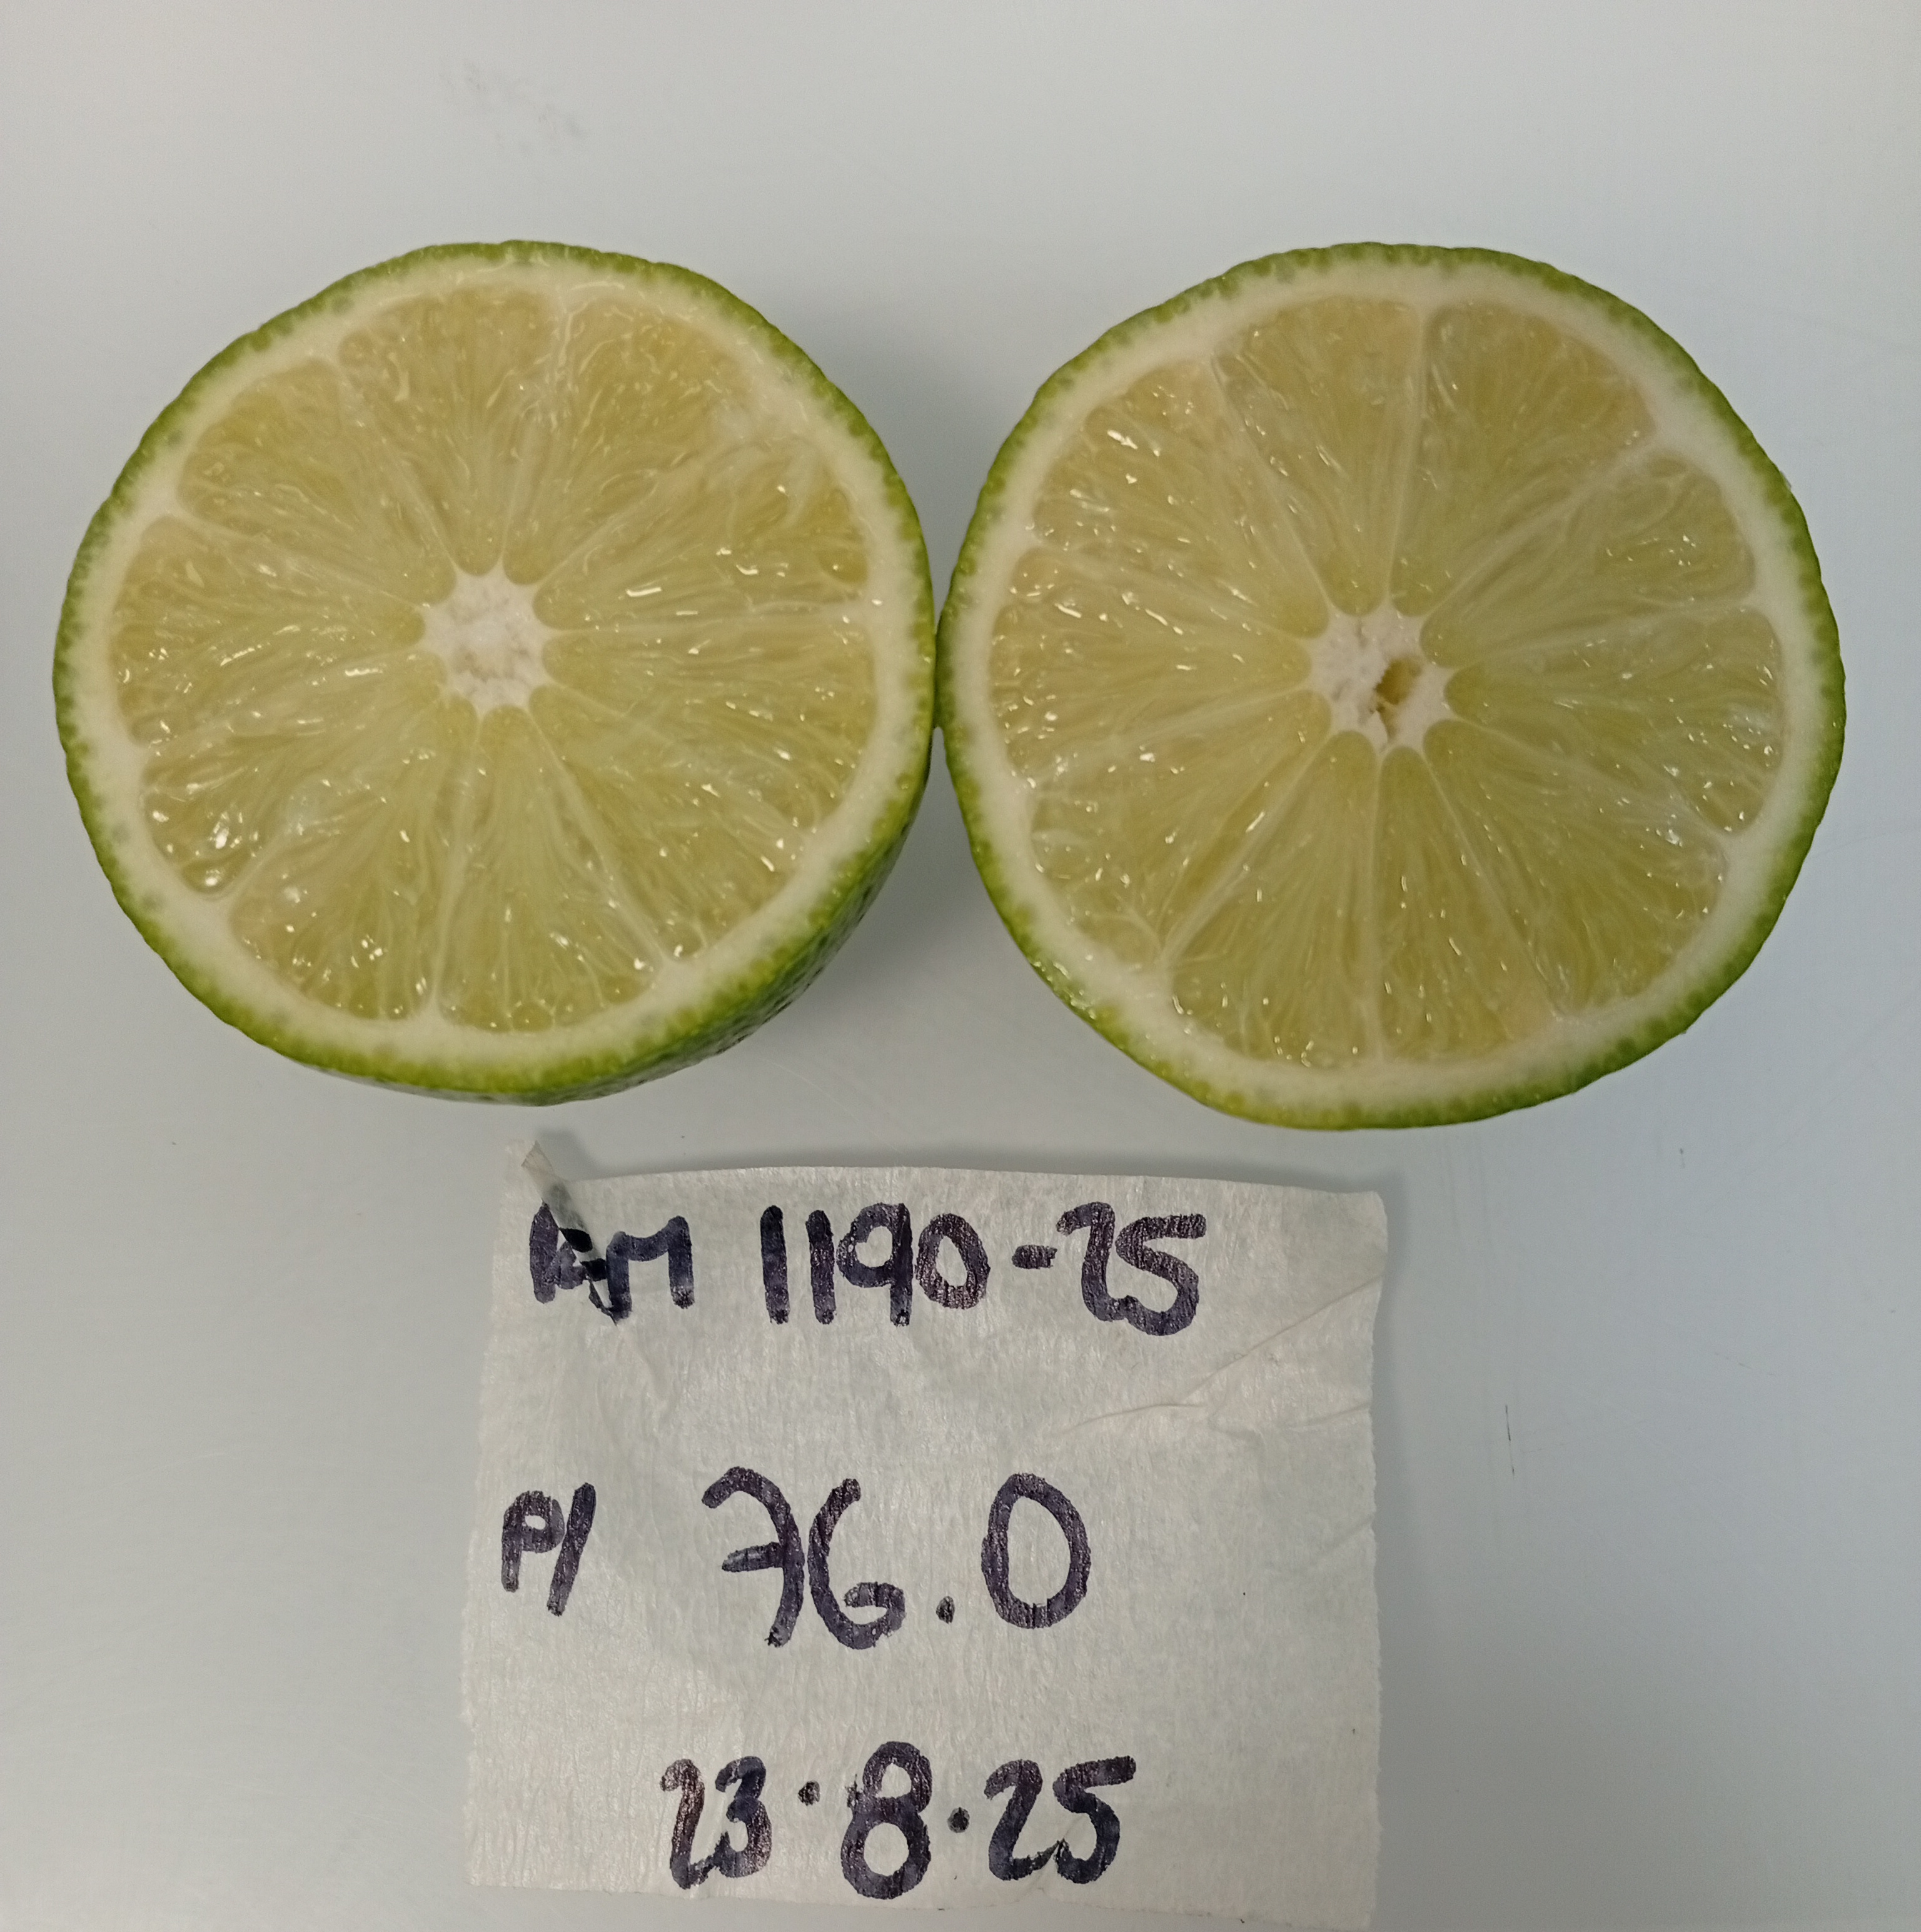 1190-25
P/ 76.0
23.8.25